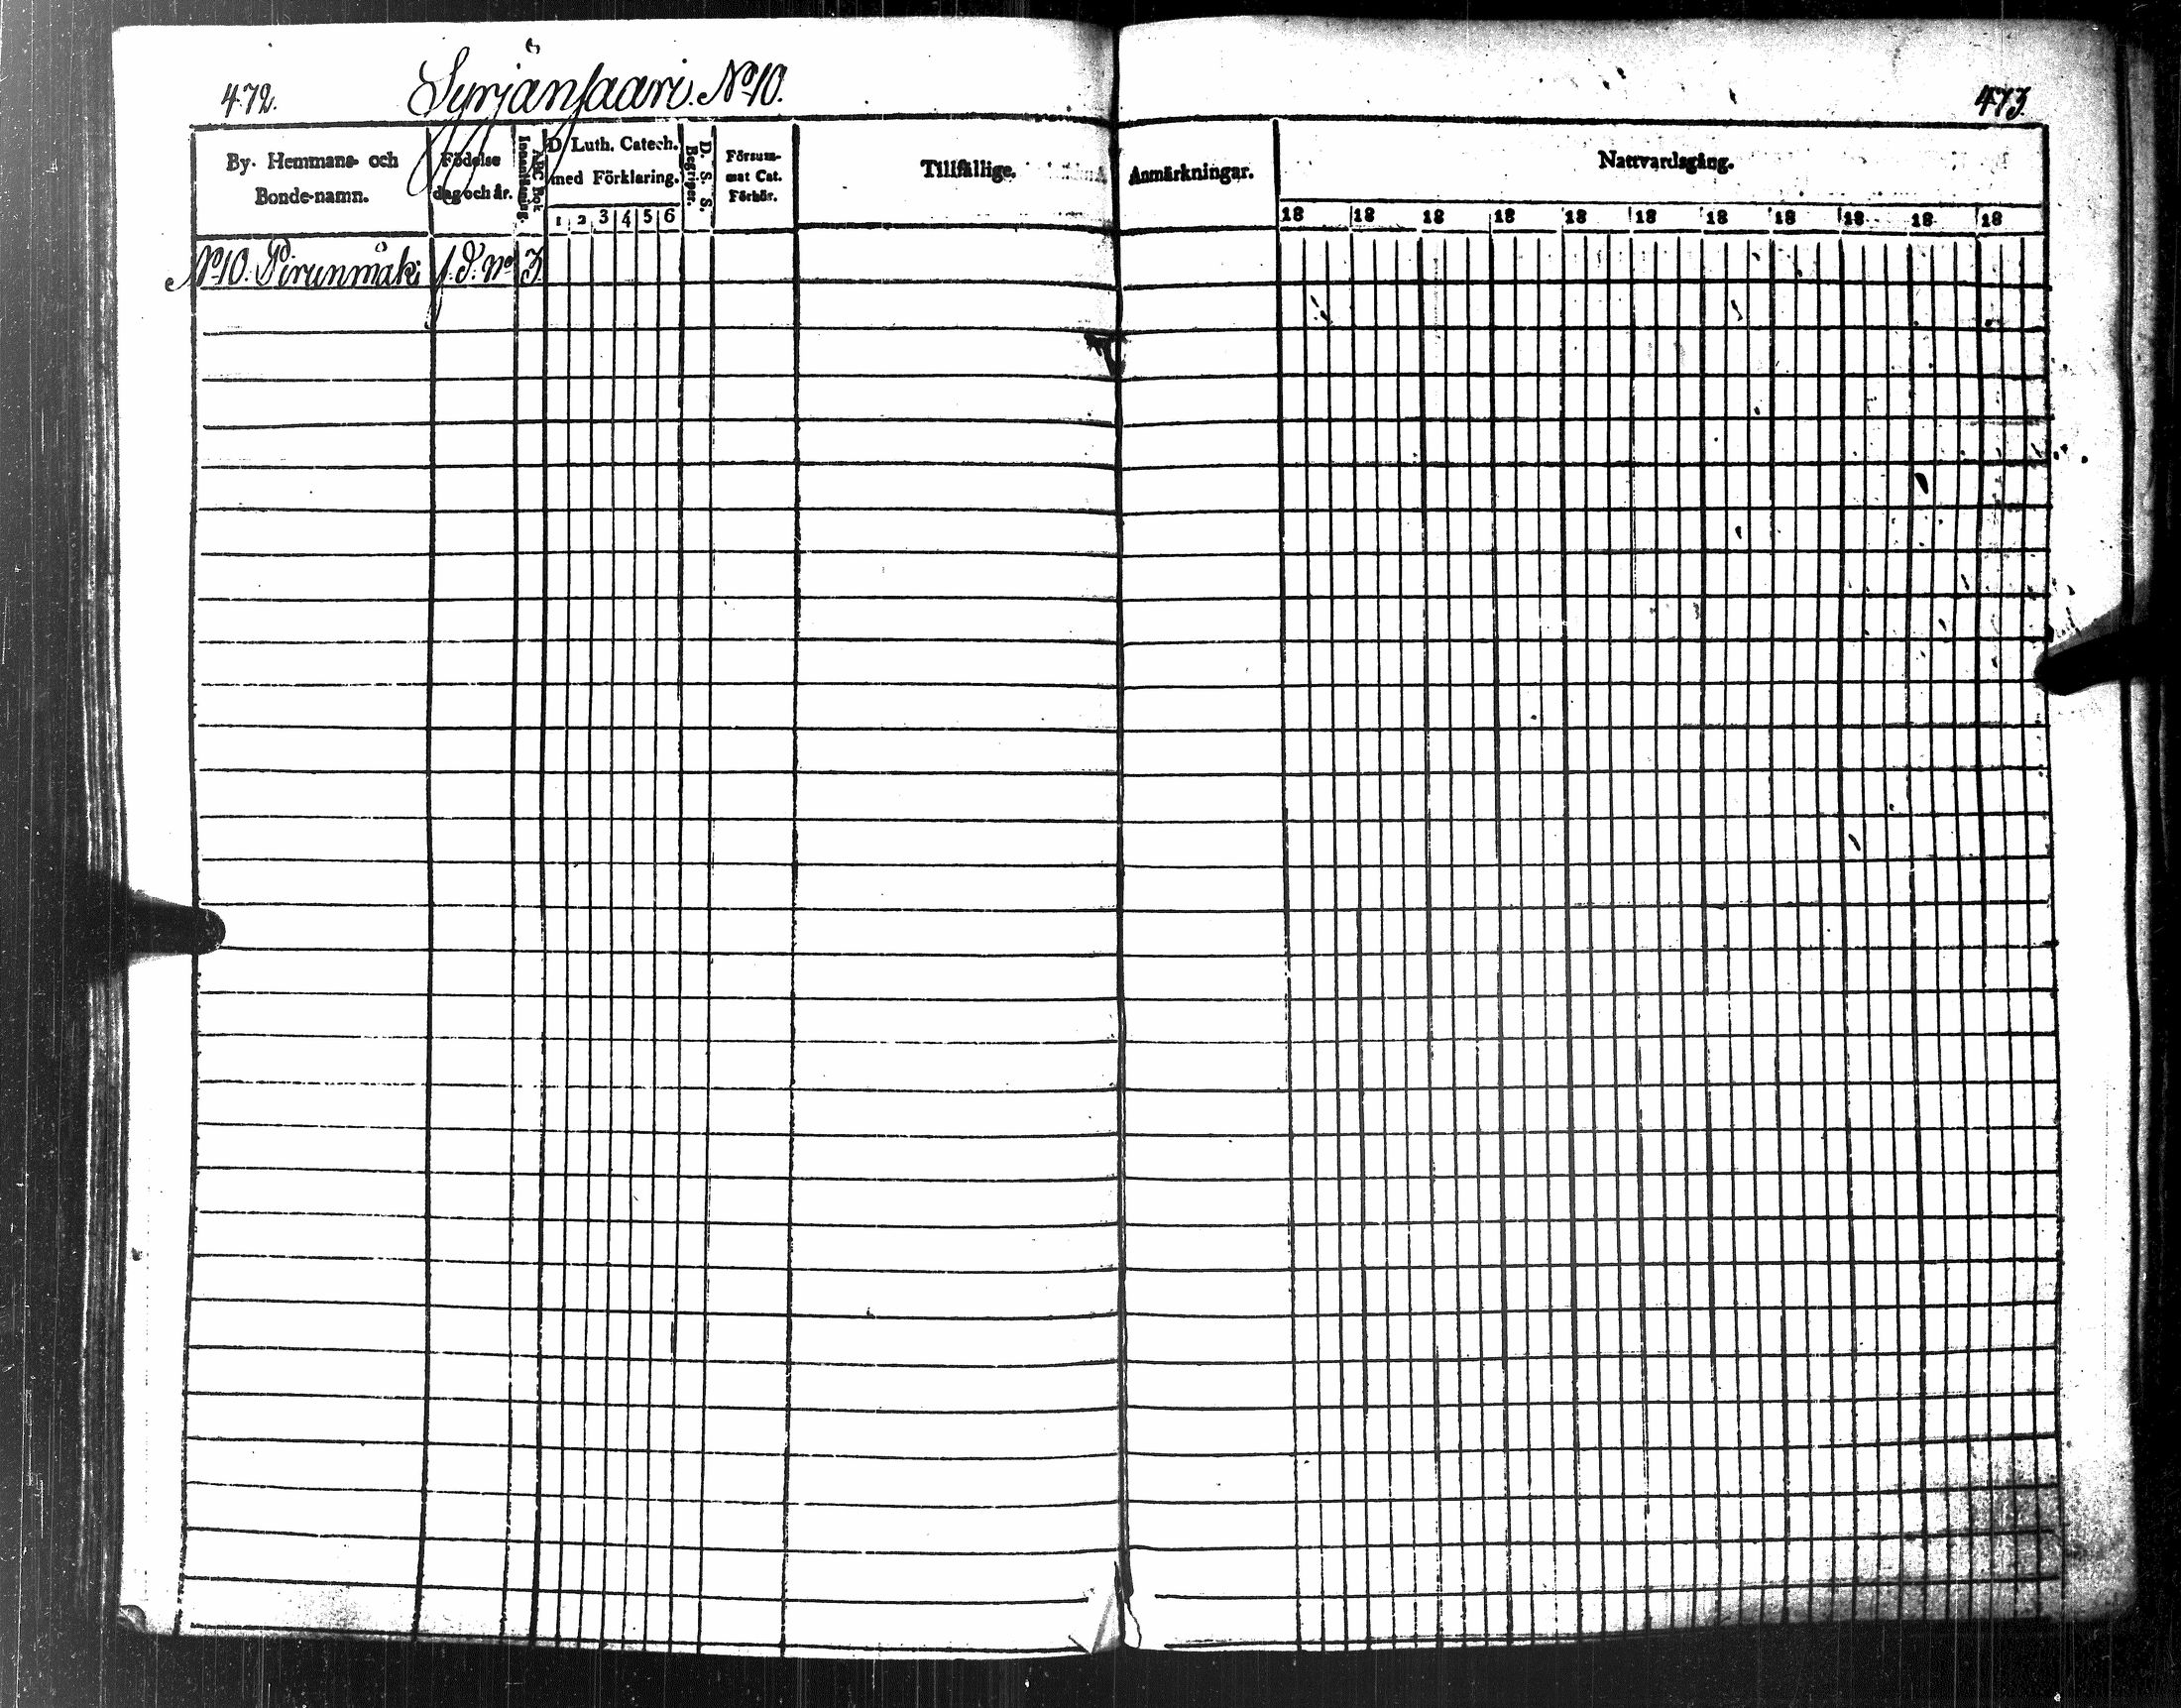 472. Syrjänsaari. No 10. 473.
By- Hemmans- och Bonde-namn.
Födelse dag och år.
ABC Bok Innanläsning.
D. Luth. Catech. med Förklaring.
1 2 3 4 5 6
D. S. S. S. Begriper.
Försum- mat Cat. Förhör.
Tillfällige.
Anmärkningar.
Nattvardsgång.
18 18 18 18 18 18 18 18 18 18 18
No 10. Pirunmäki f. d. No 3.